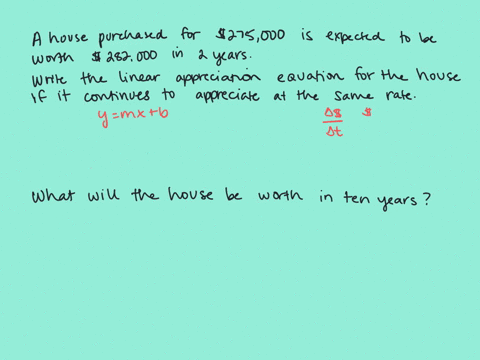 A house purchased for $275,000 is expected to be
worth $282.000 in 2 years.
Write the linear appreciation equation for the house
if it continues to appreciate at the same rate.
y=mx+b Δ$ $
Δt
What will the house be worth in ten years?